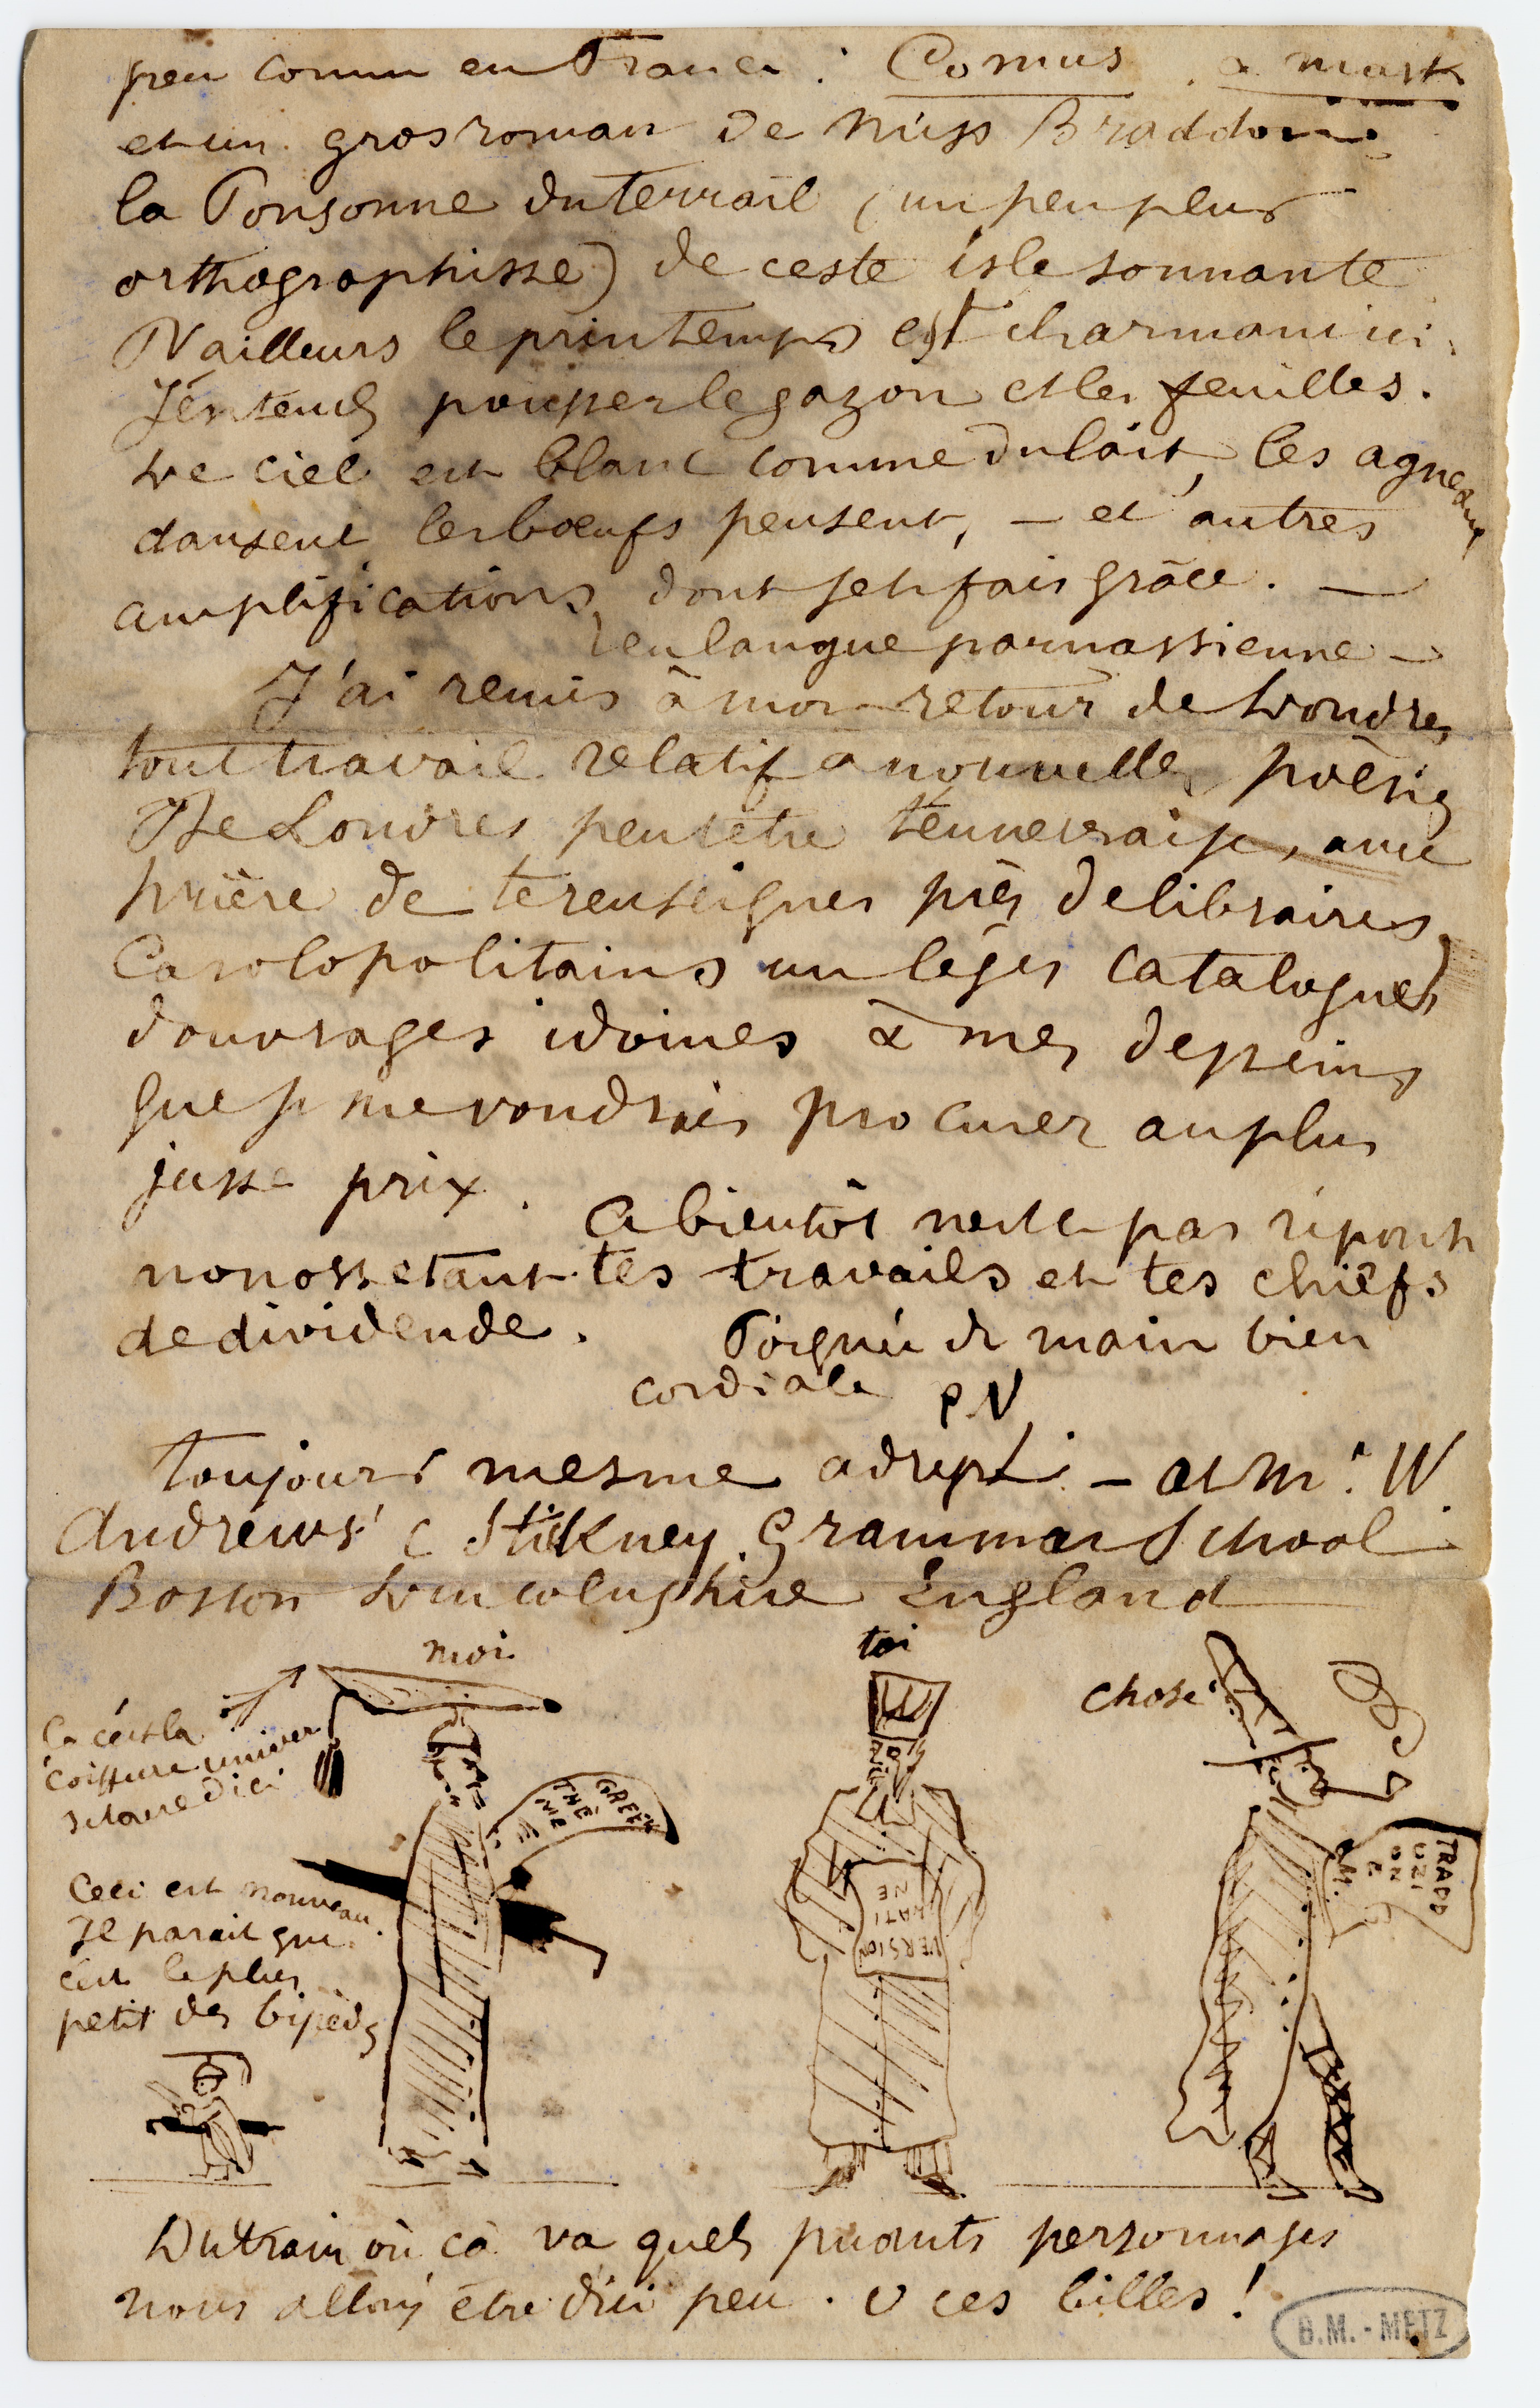 peu connu en France : Comus, a mask
et un gros roman de Miss Braddon,
la Ponsonne du Terrail (un peu plus
orthographisse) de ceste isle sonnante
D'ailleurs le printemps est charmant ici.
J'entends pousser le gazon et les feuilles.
Le ciel est blanc comme du lait, les agneaux
dansent les bœufs pensent, — et autres
amplifications dont je te fais grâce. —
en langue parnassienne —
J'ai remis à mon retour de Londres
tout travail relatif à nouvelles poésies
De Londres peut être t'enverrai je, avec
prière de te renseigner près de libraires
Carolopolitains un léger catalogue
d'ouvrages idoines à mes desseins
que je me voudrais procurer au plus
juste prix.
A bientôt nest ce pas réponse
nonosstetant tes travails et tes chiefs
de dividende. Poignée de main bien
cordiale P.V.
Toujours mesme adresse : — at Mr. W.
Andrews' Stickney Grammar School
Boston Lincolnshire England
moi
toi
chose
Ça c'est la
coiffure univer
sitaire d'ici
GREEK
THÈ
ME
Ceci est nouveau.
Il parait que
c'est le plus
petit des bipèdes
VERSION
LATI
NE
TRADD
UZI
ON
E
Du train où çà va quels puants personnages
nous allons être d'ici peu. O ces billes !
B.M. - METZ